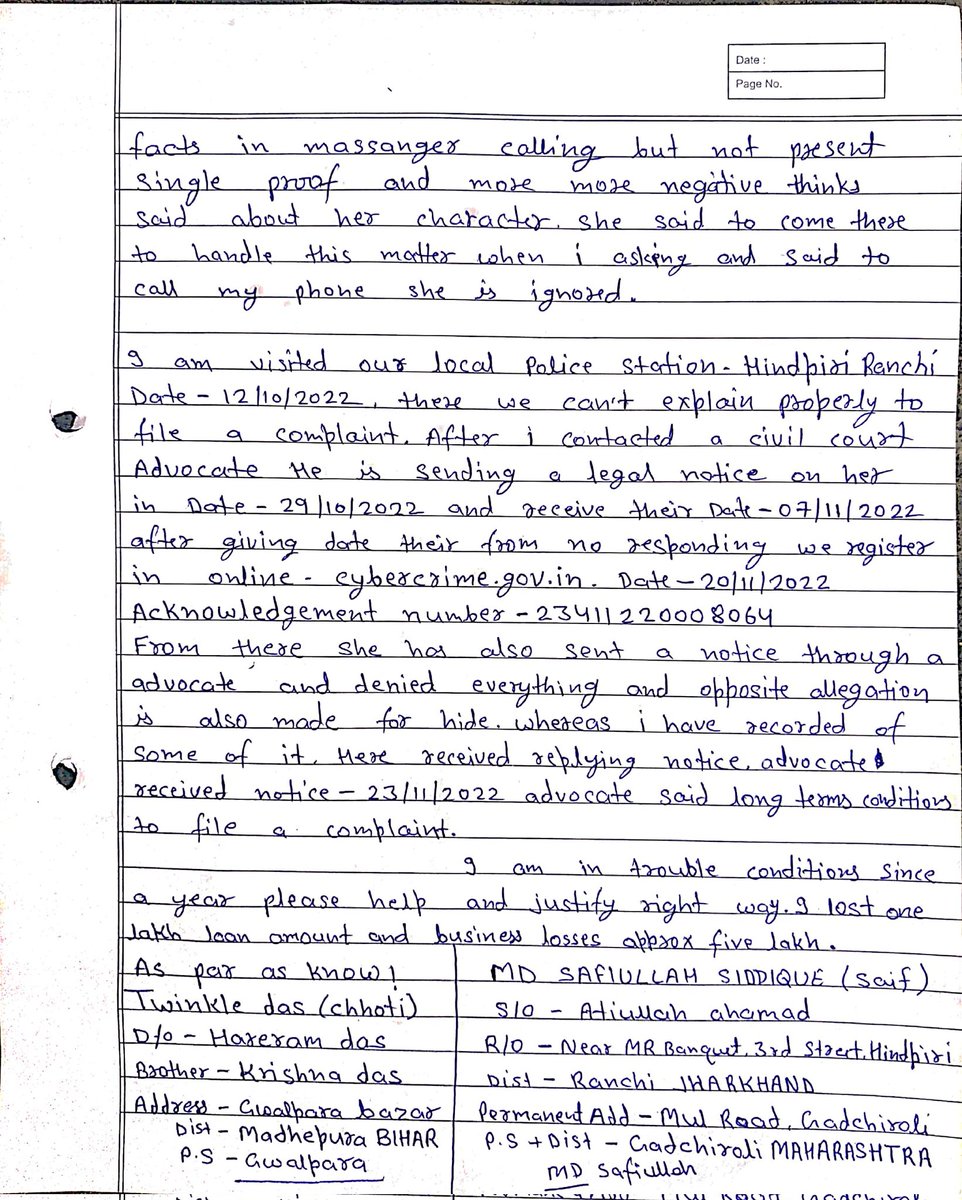 Date :
Page No.
facts in massanger calling but not present
single proof and more more negative thinks
said about her character. She said to come there
to handle this matter when i asking and said to
call my phone she is ignored.
I am visited our local Police Station - Hindpiri Ranchi
Date - 12/10/2022, there we can't explain properly to
file a complaint. After i contacted a civil court
Advocate He is sending a legal notice on her
in Date - 29/10/2022 and receive their Date - 07/11/2022
after giving date their from no responding we register
in online - cybercrime.gov.in. Date - 20/11/2022
Acknowledgement number - 23411220008064
From there she has also sent a notice through a
advocate and denied everything and opposite allegation
is also made for hide. whereas i have recorded of
some of it. Here received replying notice. advocate
received notice - 23/11/2022 advocate said long terms conditions
to file a complaint.
I am in trouble conditions since
a year please help and justify right way. I lost one
lakh loan amount and business losses approx five lakh.
As par as know!
Twinkle das (chhoti)
D/o - Hareram das
Brother - Krishna das
Address - Gwalpara bazar
Dist - Madhepura BIHAR
P.S - Gwalpara
MD SAFIULLAH SIDDIQUE (Saif)
S/O - Atiullah ahamad
R/O - Near MR Banquet, 3rd Street, Hindpiri
Dist - Ranchi JHARKHAND
Permanent Add - Mul Road, Gadchiroli
P.S + Dist - Gadchiroli MAHARASHTRA
MD Safiullah